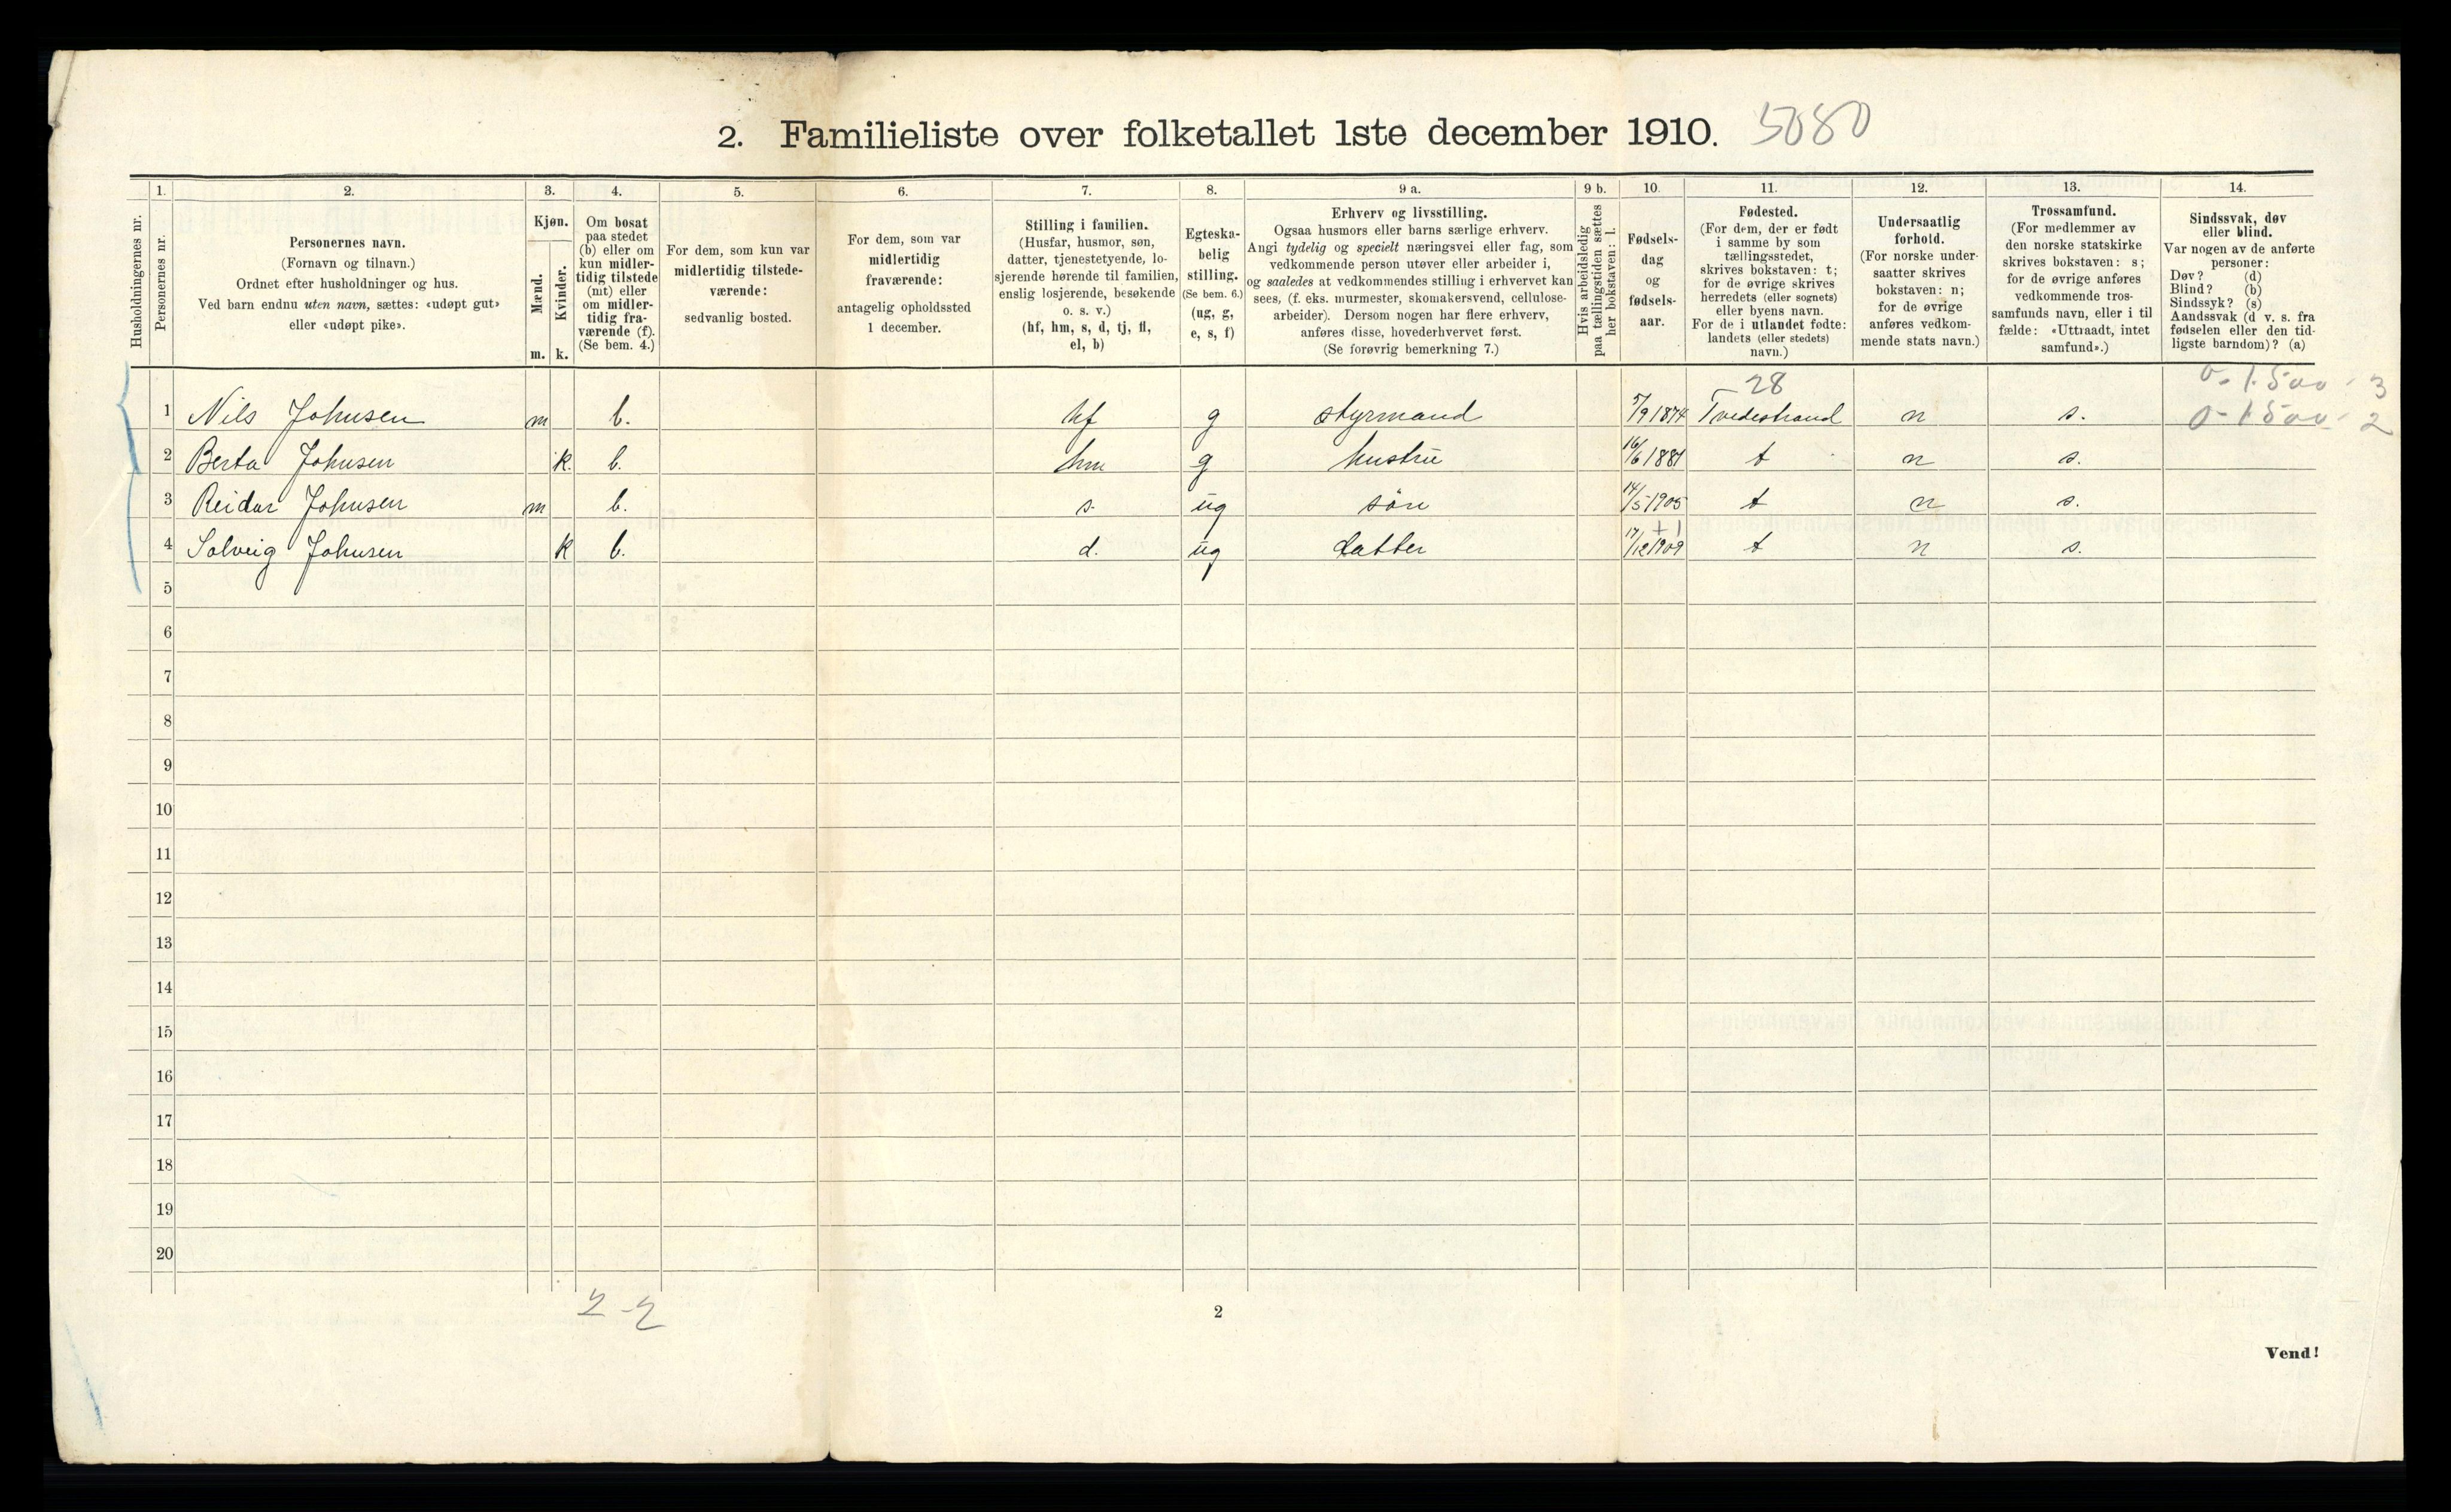 2. Familieliste over folketallet 1ste december 1910. 5080
Husholdningernes nr.
1.
Personernes nr.
2.
Personernes navn.
(Fornavn og tilnavn.)
Ordnet efter husholdninger og hus.
Ved barn endnu uten navn, sættes: «udøpt gut»
eller «udøpt pike».
3.
Kjøn.
Mænd.
m.
Kvinder.
k.
4.
Om bosat
paa stedet
(b) eller om
kun midler-
tidig tilstede
(mt) eller
om midler-
tidig fra-
værende (f).
(Se bem. 4.)
5.
For dem, som kun var
midlertidig tilstede-
værende:
sedvanlig bosted.
6.
For dem, som var
midlertidig
fraværende:
antagelig opholdssted
1 december.
7.
Stilling i familien.
(Husfar, husmor, søn,
datter, tjenestetyende, lo-
sjerende hørende til familien,
enslig losjerende, besøkende
o. s. v.)
(hf, hm, s, d, tj, fl,
el, b)
8.
Egteska-
belig
stilling.
(Se bem. 6.)
(ug, g,
e, s, f)
9 a.
Erhverv og livsstilling.
Ogsaa husmors eller barns særlige erhverv.
Angi tydelig og specielt næringsvei eller fag, som
vedkommende person utøver eller arbeider i,
og saaledes at vedkommendes stilling i erhvervet kan
sees, (f. eks. murmester, skomakersvend, cellulose-
arbeider). Dersom nogen har flere erhverv,
anføres disse, hovederhvervet først.
(Se forøvrig bemerkning 7.)
9 b.
Hvis arbeidsledig
paa tællingstiden sættes
her bokstaven: l.
10.
Fødsels-
dag
og
fødsels-
aar.
11.
Fødested.
(For dem, der er født
i samme by som
tællingsstedet,
skrives bokstaven: t;
for de øvrige skrives
herredets (eller sognets)
eller byens navn.
For de i utlandet fødte:
landets (eller stedets)
navn.)
12.
Undersaatlig
forhold.
(For norske under-
saatter skrives
bokstaven: n;
for de øvrige
anføres vedkom-
mende stats navn.)
13.
Trossamfund.
(For medlemmer av
den norske statskirke
skrives bokstaven: s;
for de øvrige anføres
vedkommende tros-
samfunds navn, eller i til
fælde: «Uttraadt, intet
samfund».)
14.
Sindssvak, døv
eller blind.
Var nogen av de anførte
personer:
Døv? (d)
Blind? (b)
Sindssyk? (s)
Aandssvak (d v. s. fra
fødselen eller den tid-
ligste barndom)? (a)
28 0-1500-3
1 Nils Johnsen m b. hf g styrmand 5/9 1874 Tvedestrand n s. 0-1500-2
2 Berta Johnsen k. b. hm g hustru 16/6 1881 t n s.
3 Reidar Johnsen m b. s. ug søn 14/5 1905 t n s.
4 Solveig Johnsen k b. d. ug datter 17/12 1909 t n s.
5
6
7
8
9
10
11
12
13
14
15
16
17
18
19
20
2-2
2
Vend!